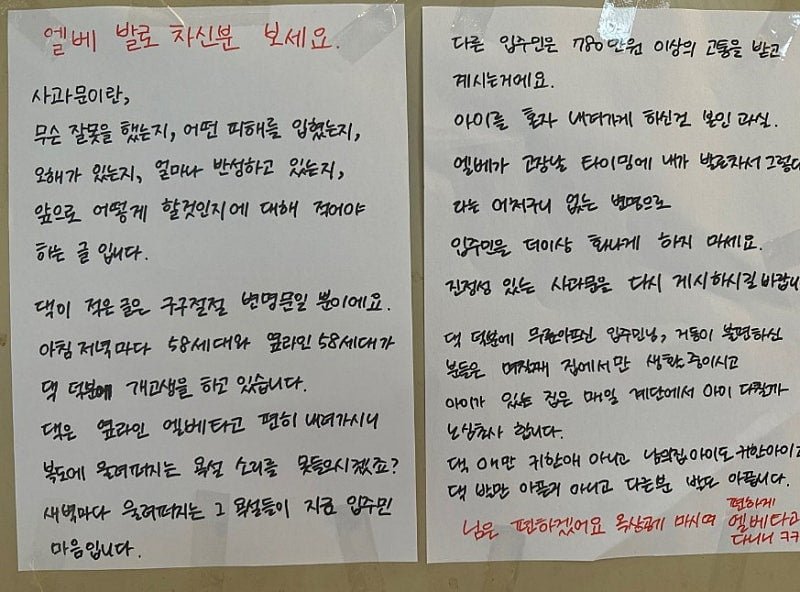 엘베 발로 차신분 보세요.
사과문이란,
무슨 잘못을 했는지, 어떤 피해를 입혔는지,
오해가 있는지, 얼마나 반성하고 있는지,
앞으로 어떻게 할것인지에 대해 적어야
하는 글 입니다.
댁이 적은글은 구구절절 변명문일 뿐이에요.
아침저녁마다 58세대와 옆라인 58세대가
댁 덕분에 개고생을 하고 있습니다.
댁은 옆라인 엘베타고 편히 내려가시니
복도에 울려퍼지는 욕설 소리를 못들으시겠죠?
새벽마다 울려퍼지는 그 욕설들이 지금 입주민
마음입니다.
다른 입주민은 780만원 이상의 고통을 받고
계시는거에요.
아이를 혼자 내려가게 하신건 본인 과실.
엘베가 고장날 타이밍에 내가 발로차서 그렇다
라는 어처구니 없는 변명으로
입주민을 더이상 화나게 하지 마세요.
진정성 있는 사과문을 다시 게시하시길 바랍니
댁 덕분에 무릎아프신 입주민님, 거동이 불편하신
분들은 며칠째 집에서만 생활중이시고
아이가 있는 집은 매일 계단에서 아이 다칠까
노심초사 합니다.
댁 애만 귀한애 아니고 남의집아이도 귀한아이고
댁 발만 아픈거 아니고 다른분 발도 아픕니다.
님은 편하겠어요 옥상공기 마시며 편하게
엘베타고
다니니 ㅋㅋ